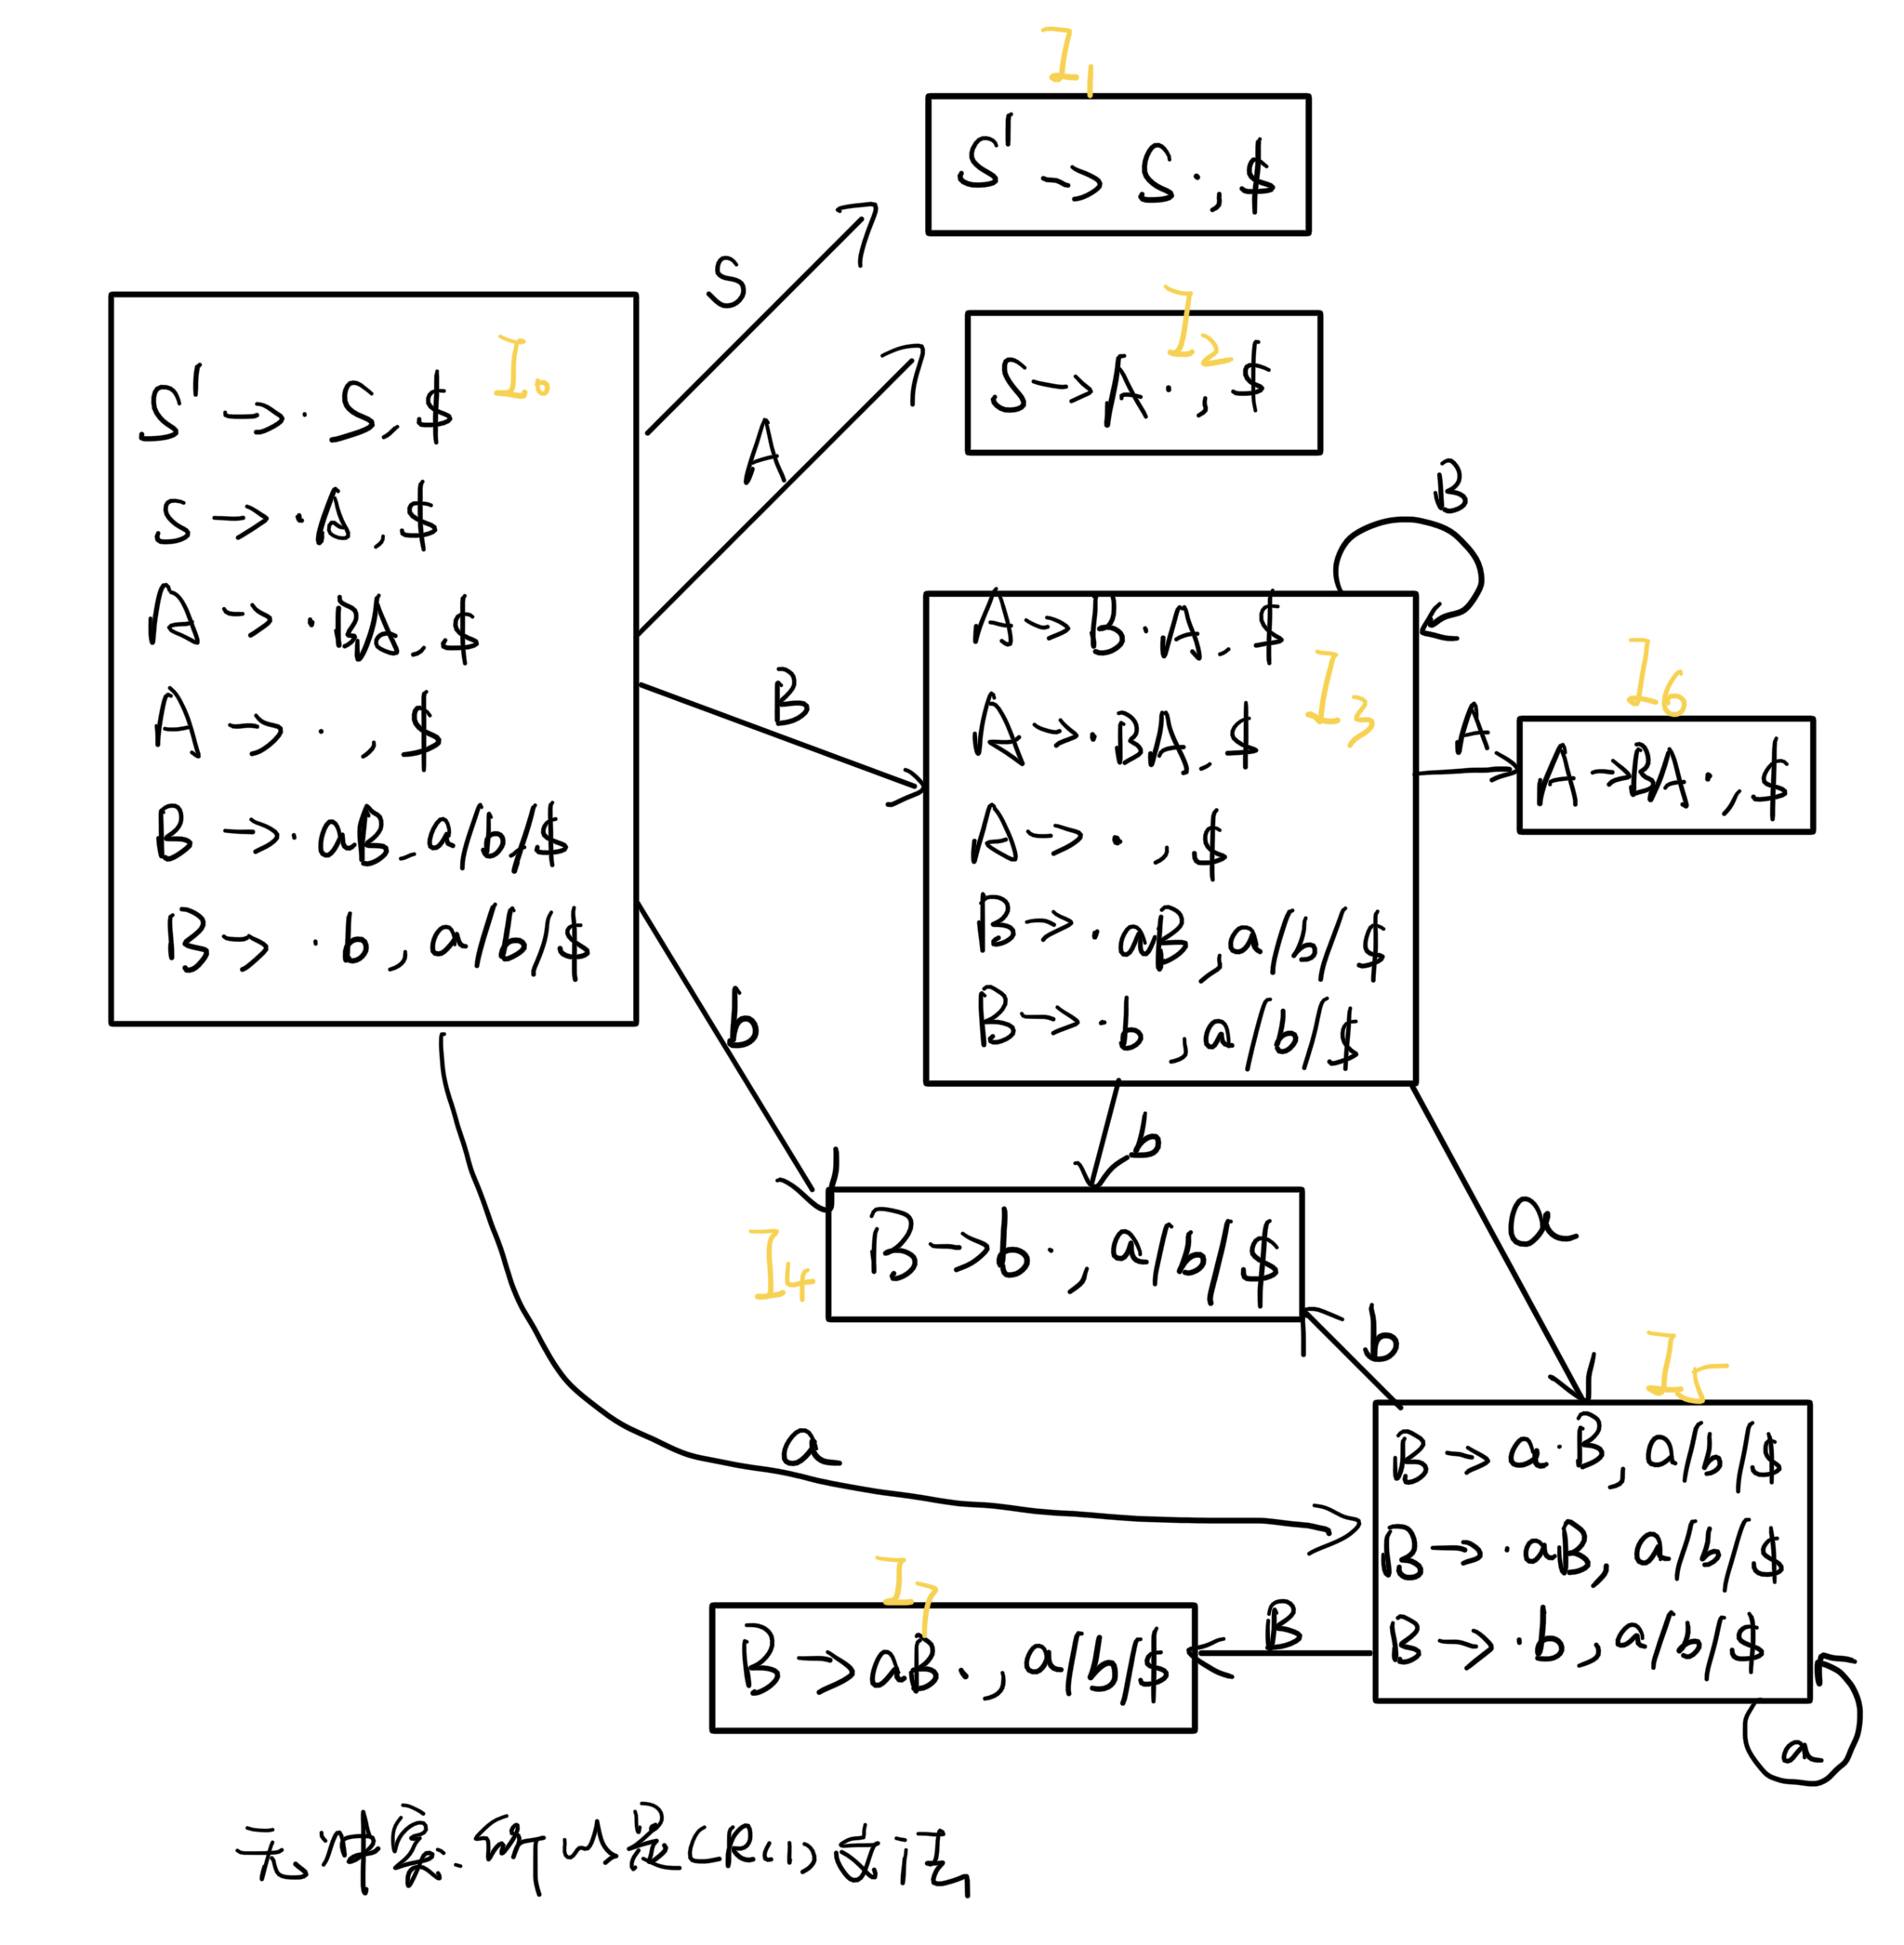 I₁
S' → S·, $
S
I₀
S' → ·S, $
S → ·A, $
A → ·BA, $
A → ·, $
B → ·aB, a/b/$
B → ·b, a/b/$
A
I₂
S → A·, $
B
B
I₃
A → B·A, $
A → ·BA, $
A → ·, $
B → ·aB, a/b/$
B → ·b, a/b/$
A
I₆
A → BA·, $
b
b
a
I₄
B → b·, a/b/$
b
a
I₅
B → a·B, a/b/$
B → ·aB, a/b/$
B → ·b, a/b/$
B
a
I₇
B → aB·, a/b/$
无冲突.所以是LR(1)文法